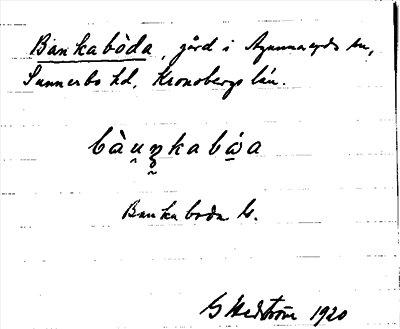 Bankabòda, gård i Agunnaryds sn,
Sunnerbo hd, Kronobergs län.
bàu̯ŋ̥kabω̲a
Bankaboda G.
G Hedström 1920